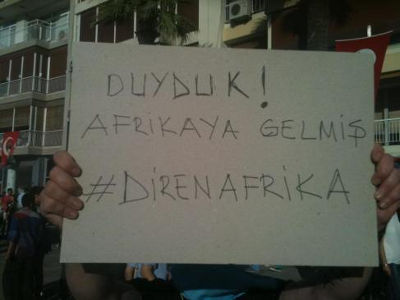 DUYDUK!
AFRIKAYA GELMİŞ
#DİRENAFRİKA